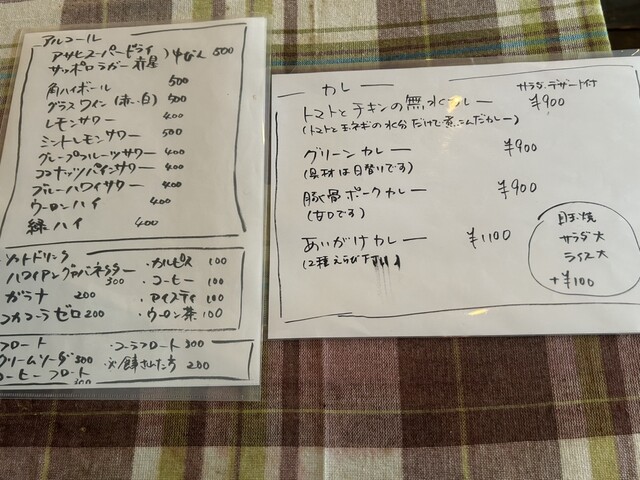 アルコール
アサヒスーパードライ
サッポロラガー 赤星 ) 中びん 500
角ハイボール 500
グラスワイン (赤・白) 500
レモンサワー 400
ミントレモンサワー 500
グレープフルーツサワー 400
ココナッツパインサワー 400
ブルーハワイサワー 400
ウーロンハイ 400
緑ハイ 400
ソフトドリンク
ハワイアングァバネクター 300
ガラナ 200
コカコーラゼロ 200
・カルピス 100
・コーヒー 100
・アイスティ 100
・ウーロン茶 100
フロート
クリームソーダ 300
コーヒーフロート 300
・コーラフロート 300
200
カレー
サラダ、デザート付
トマトとチキンの無水カレー ¥900
(トマトと玉ネギの水分だけで煮こんだカレー)
グリーンカレー ¥900
(具材は日替りです)
豚骨ポークカレー ¥900
(甘口です)
あいがけカレー ¥1100
(2種えらび下
目玉焼
サラダ大
ライス大
+¥100